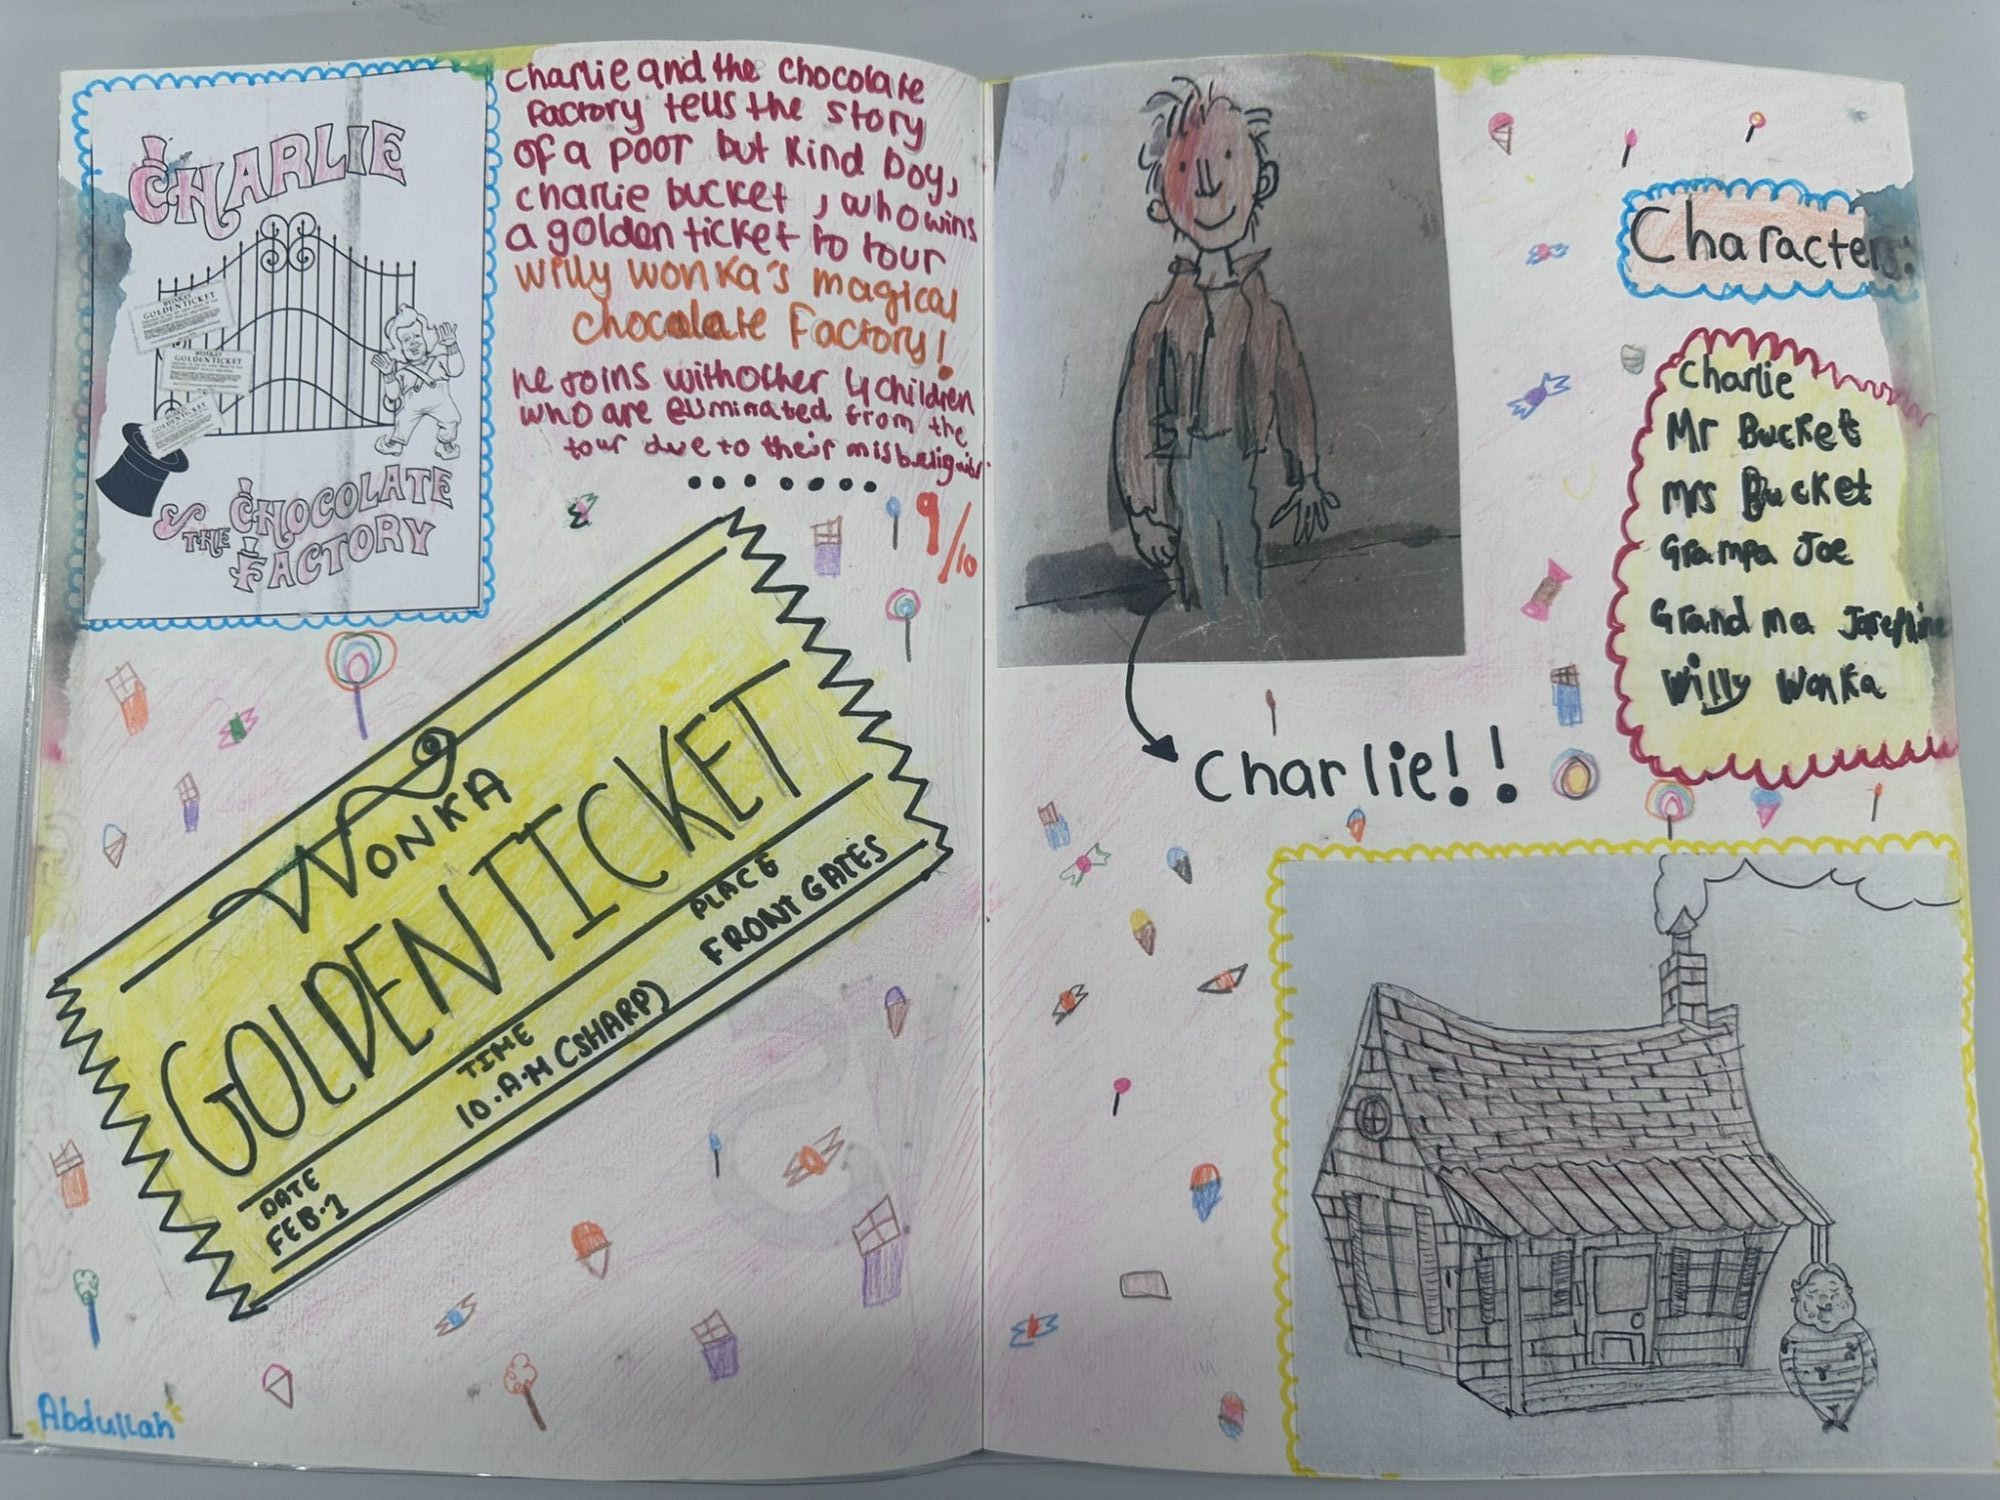 CHARLIE
WONKA'S
GOLDEN TICKET
WONKA'S
GOLDEN TICKET
WONKA'S
GOLDEN TICKET
& THE CHOCOLATE
FACTORY
Charlie and the chocolate
Factory tells the story
of a poor but kind boy,
charlie bucket , who wins
a golden ticket to tour
Willy Wonka's magical
chocolate Factory!
he joins with other 4 children
who are eliminated from the
tour due to their
9/10
WONKA
GOLDEN TICKET
PLACE
FRONT GATES
TIME
10.A.M (SHARP)
DATE
FEB.1
Abdullah
Charlie!!
Characters:
Charlie
Mr Bucket
Mrs Bucket
Grampa Joe
Grandma Josephine
Willy Wonka